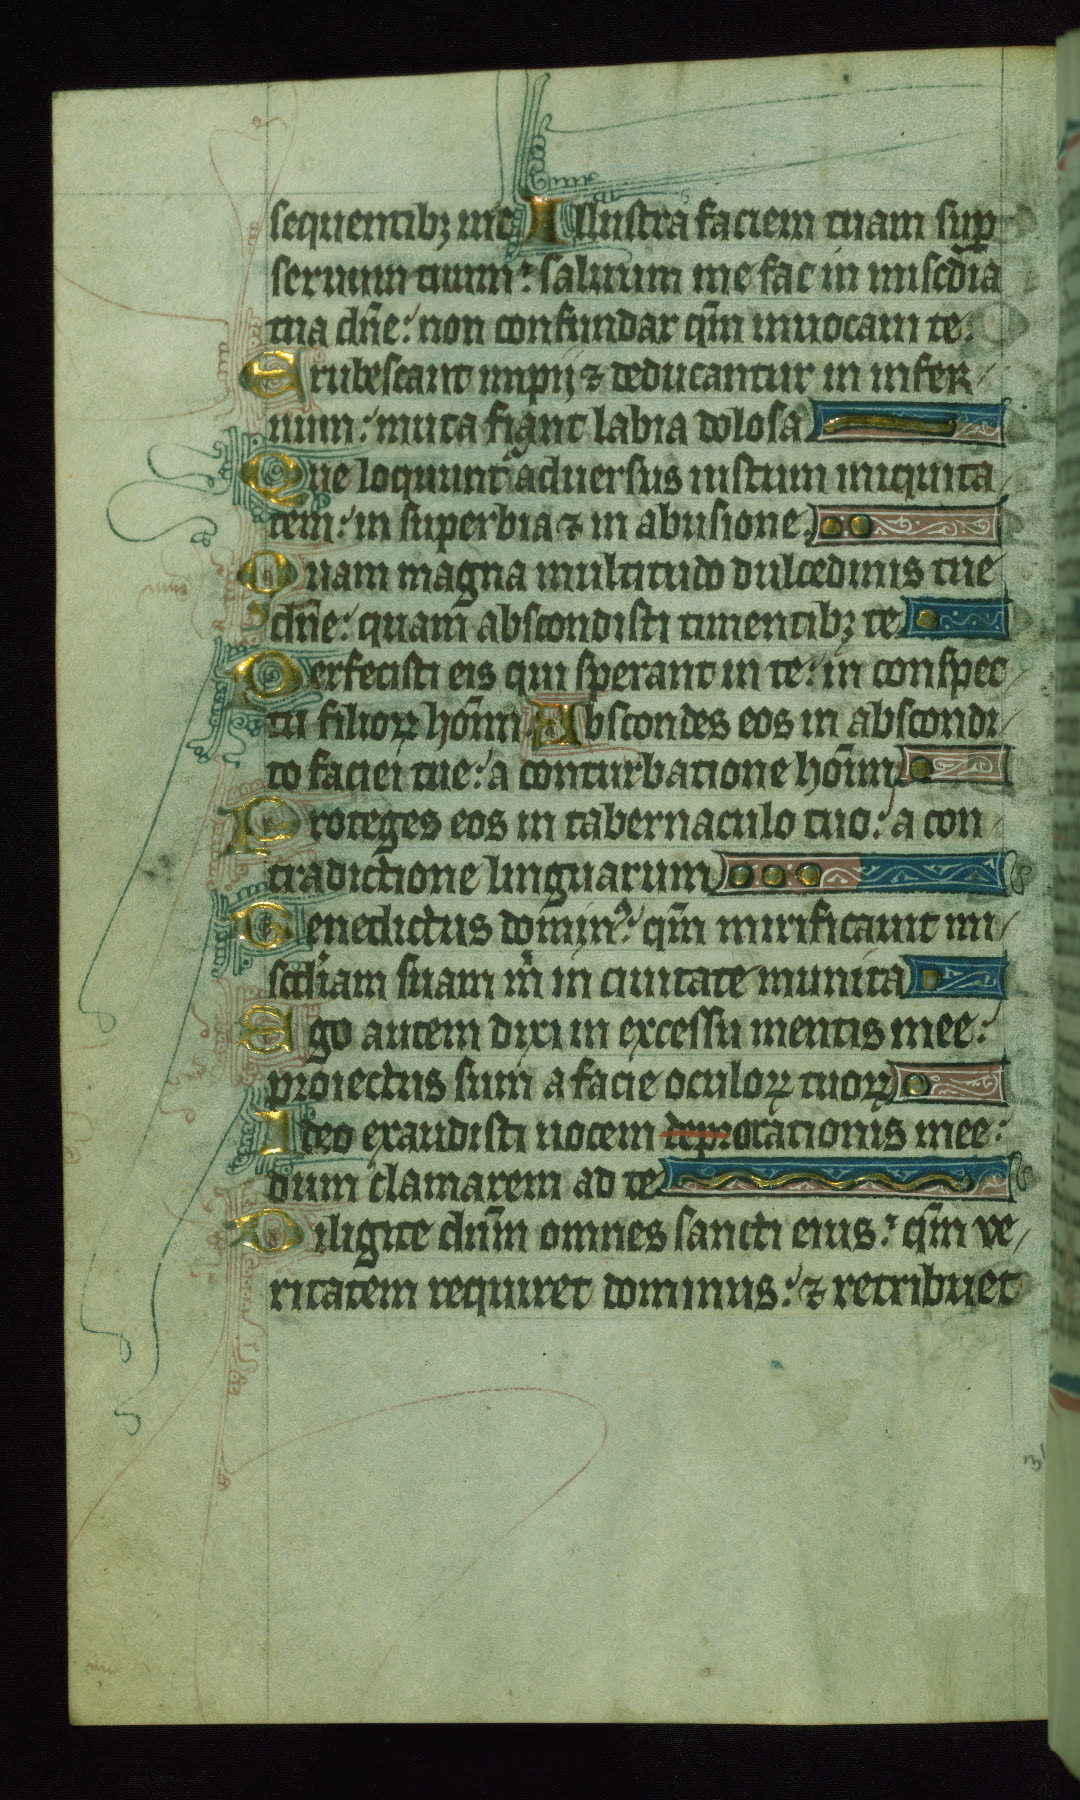 sequentibꝫ me Illustra faciem tuam suꝑ
seruum tuum: saluum me fac in misc̄dia
tua dn̄e: non confundar qm̄ inuocaui te.
Erubescant impij ⁊ deducantur in infer
num: muta fiant labia dolosa
Que loquunt᷑ aduersus iustum iniquita
tem: in superbia ⁊ in abusione.
Quam magna multitudo dulcedinis tue
dn̄e: quam abscondisti timentibꝫ te
Perfecisti eis qui sperant in te: in conspec
tu filioꝝ hōim Abscondes eos in abscondi
to faciei tue: a conturbatione hōim
Proteges eos in tabernaculo tuo: a con
tradictione linguarum
Benedictus dominꝰ: qm̄ mirificauit mi
scd̄iam suam m̄ in ciuitate munita
Ego autem dixi in excessu mentis mee:
proiectus sum a facie oculoꝝ tuoꝝ
Ideo exaudisti uocem orationis mee:
dum clamarem ad te
Diligite dnm̄ omnes sancti eius: qm̄ ve
ritatem requiret dominus: ⁊ retribuet